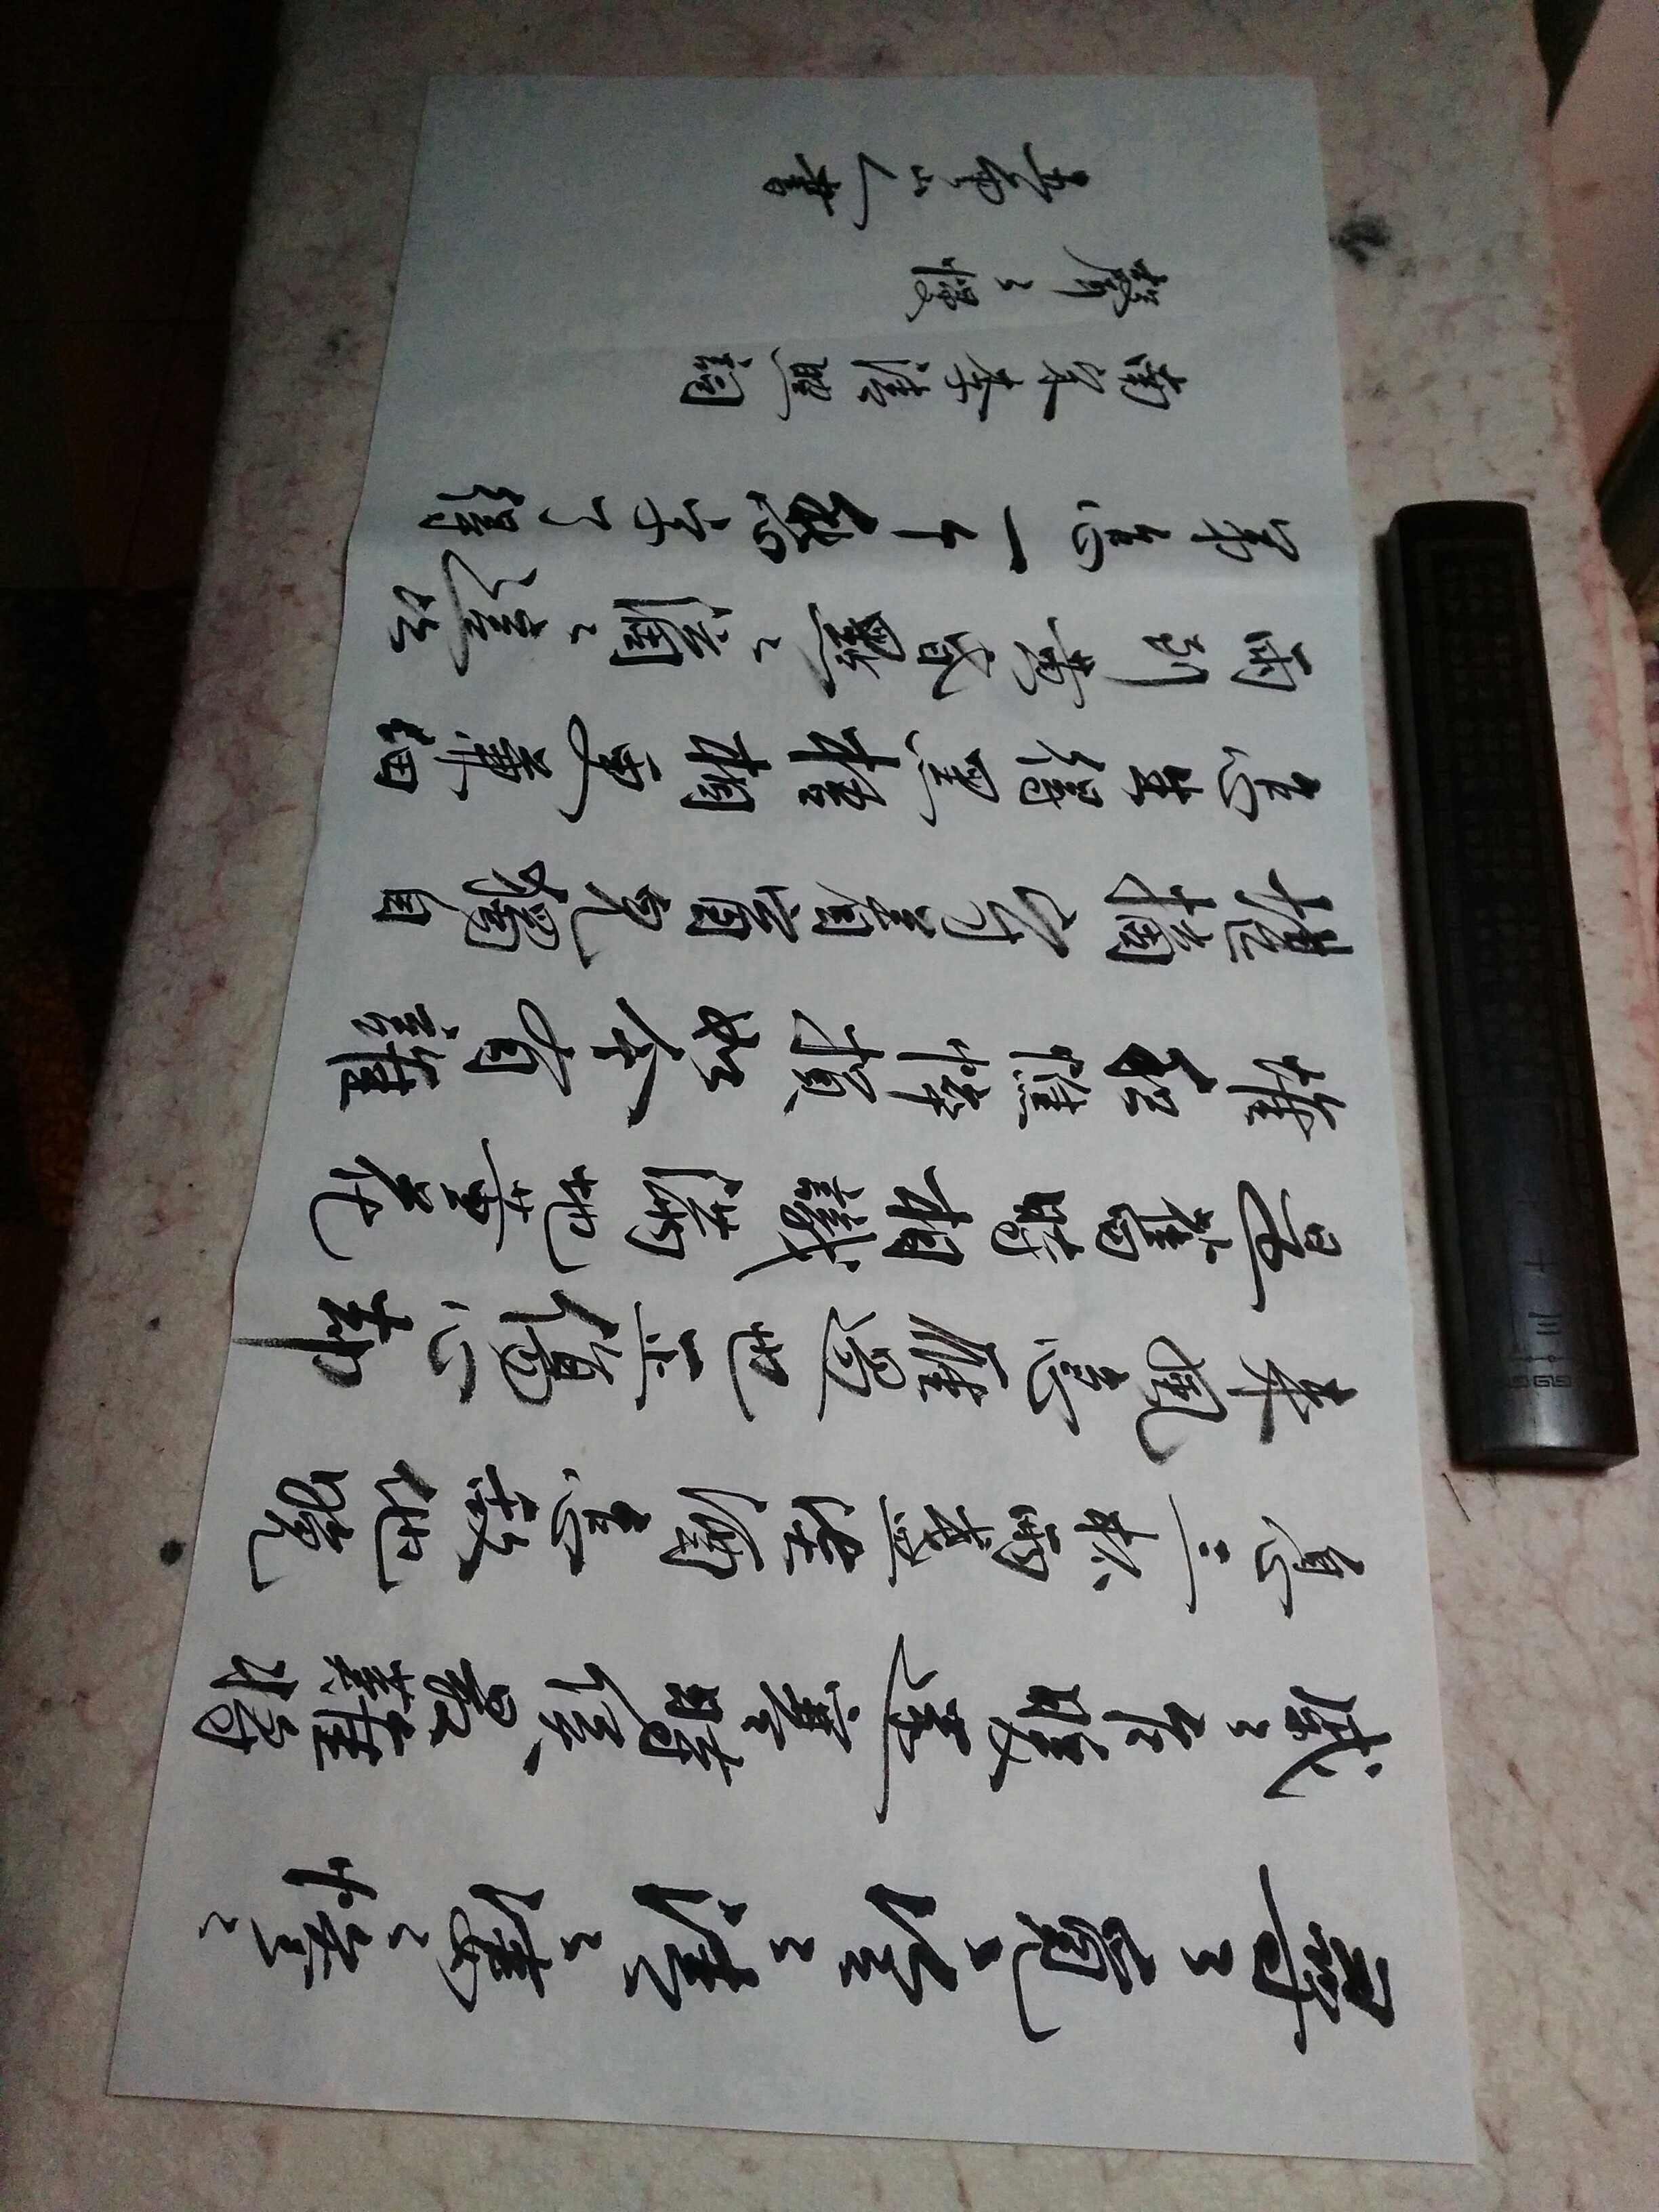 尋〻覓〻冷〻清〻凄〻慘〻
戚〻乍暖還寒時候最難將
息三杯兩盞淡酒怎敵他晚
来風急雁過也正傷心却
是舊時相識滿地黃花
堆积憔悴損如今有誰
堪摘守着窗兒獨自
怎生得黑梧桐更兼細
雨到黃昏點〻滴〻這次
第怎一个愁字了得
摘宋李清照詞
聲〻慢
書